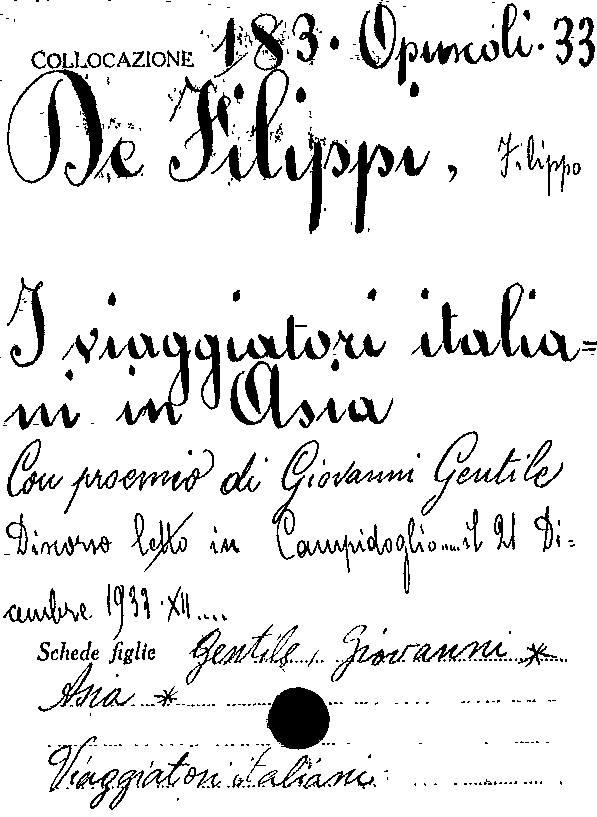 COLLOCAZIONE 183. Opuscoli. 33
De Filippi, Filippo
I viaggiatori italia=
ni in Asia
Con proemio di Giovanni Gentile
Discorso letto in Campidoglio....il 21 Di=
cembre 1933.XII....
Schede figlie Gentile, Giovanni *
Asia *
Viaggiatori italiani